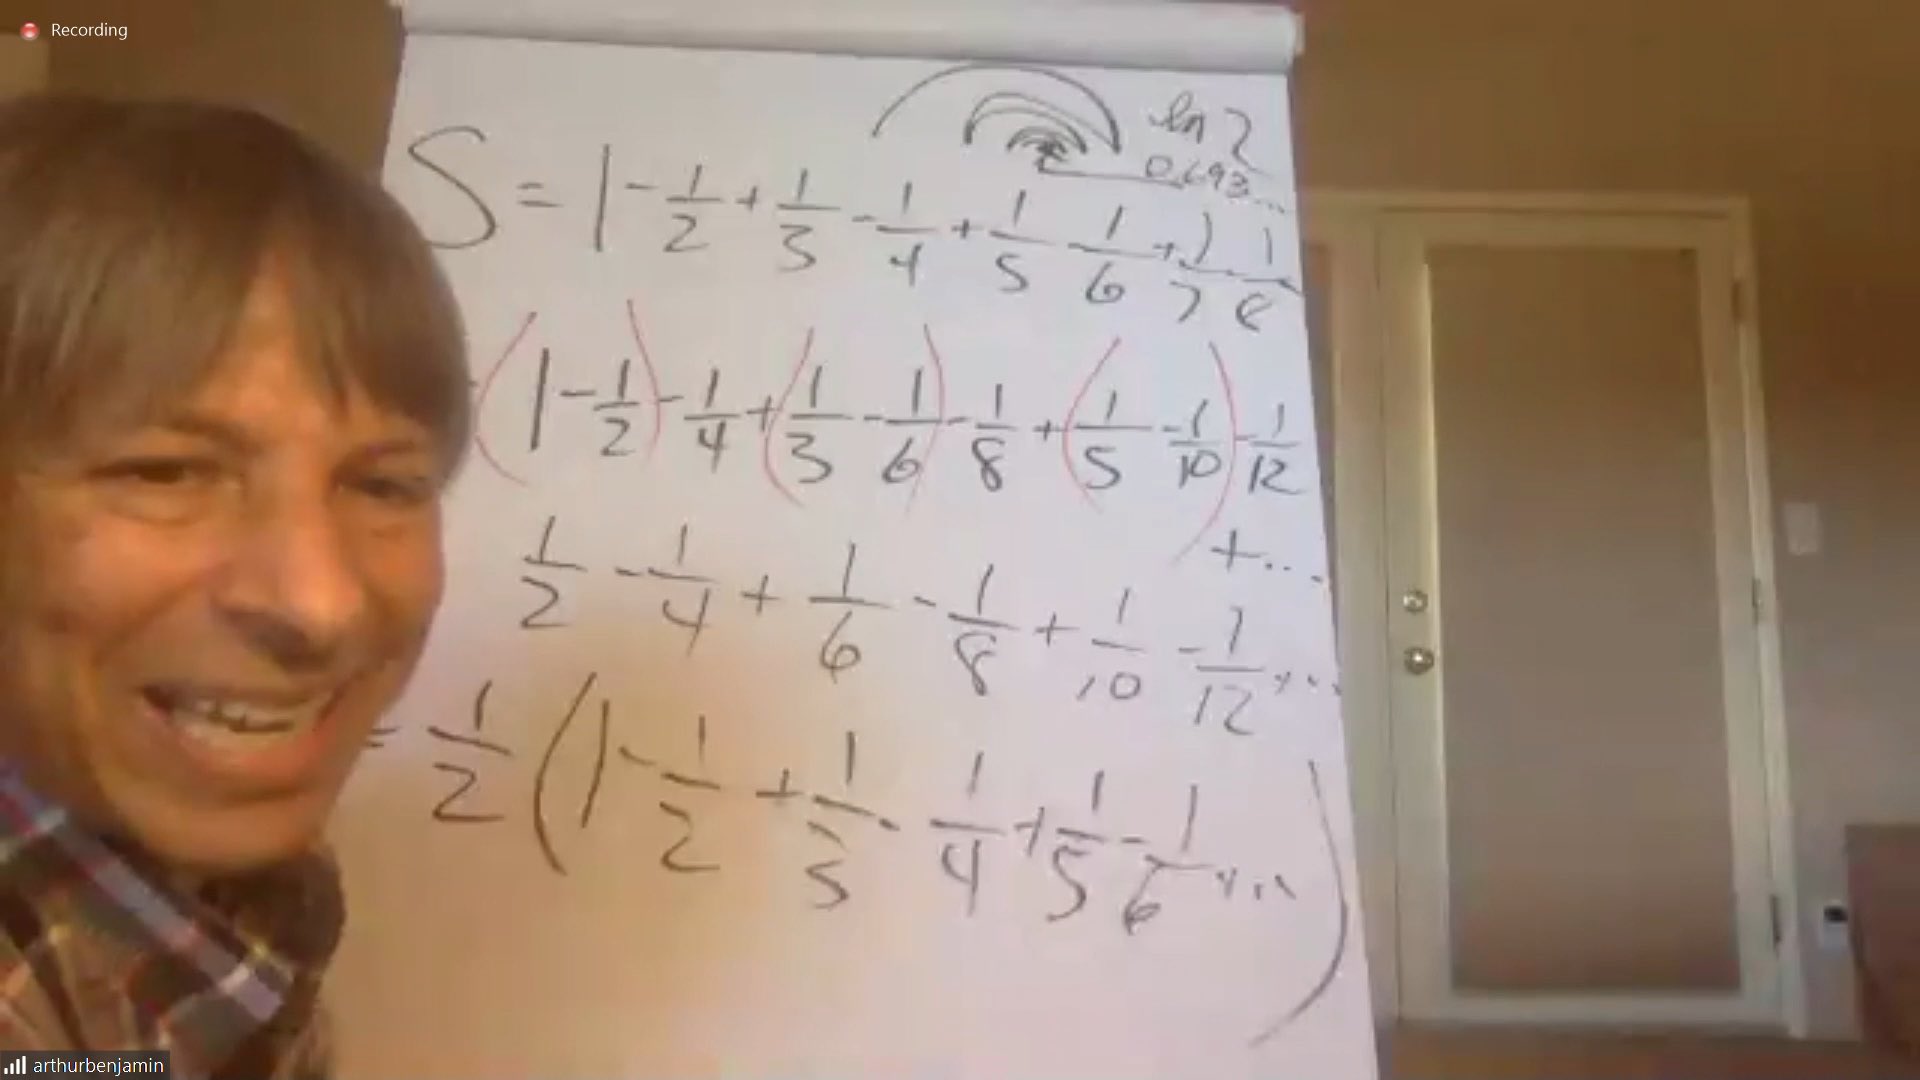 Recording
ln 2
0.693...
S = 1 - 1/2 + 1/3 - 1/4 + 1/5 - 1/6 + 1/7 - 1/8
(1 - 1/2) - 1/4 + (1/3 - 1/6) - 1/8 + (1/5 - 1/10) - 1/12
+ ...
1/2 - 1/4 + 1/6 - 1/8 + 1/10 - 1/12 ...
= 1/2 (1 - 1/2 + 1/3 - 1/4 + 1/5 - 1/6 ...)
arthurbenjamin